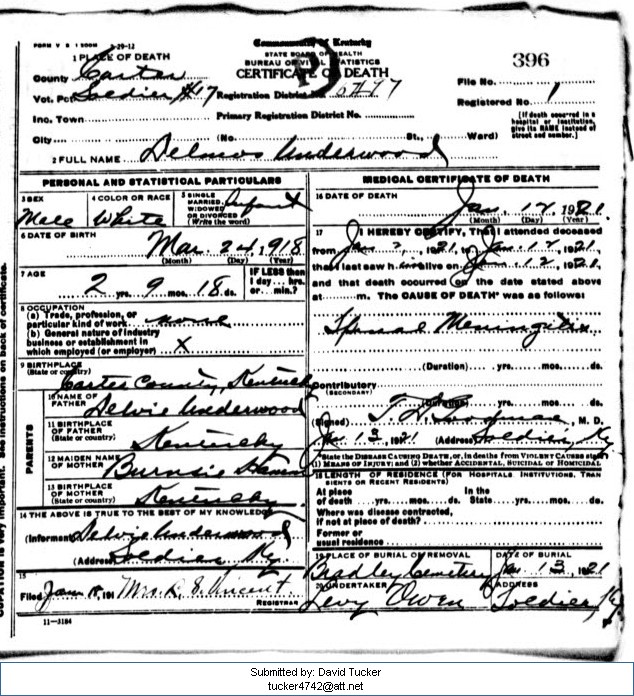 FORM V S 1 500M 3-29-12
Commonwealth of Kentucky
STATE BOARD OF HEALTH
BUREAU OF VITAL STATISTICS
CERTIFICATE OF DEATH
396
1 PLACE OF DEATH
County Carter
File No.
Vot. Pct. Soldier #17 Registration District No.
Registered No. 1
Inc. Town Primary Registration District No.
[If death occurred in a hospital or institution, give its NAME instead of street and number.]
City (No. St., Ward)
2 FULL NAME Delmos Underwood
PERSONAL AND STATISTICAL PARTICULARS
3 SEX Male
4 COLOR OR RACE White
5 SINGLE MARRIED, WIDOWED OR DIVORCED (Write the word) Infant
6 DATE OF BIRTH Mar. 24, 1918
(Month) (Day) (Year)
7 AGE 2 yrs. 9 mos. 18 ds.
IF LESS than 1 day, hrs. or min.?
8 OCCUPATION
(a) Trade, profession, or particular kind of work none
(b) General nature of industry business or establishment in which employed (or employer) x
9 BIRTHPLACE (State or country) Carter County, Kentucky
PARENTS
10 NAME OF FATHER Delvie Underwood
11 BIRTHPLACE OF FATHER (State or country) Kentucky
12 MAIDEN NAME OF MOTHER Burnsie
13 BIRTHPLACE OF MOTHER (State or country) Kentucky
14 THE ABOVE IS TRUE TO THE BEST OF MY KNOWLEDGE
(Informant) Delvie Underwood
(Address) Soldier, Ky
15
Filed Jan 18, 191 Mrs. R. S. Vincent
REGISTRAR
11-3184
MEDICAL CERTIFICATE OF DEATH
16 DATE OF DEATH Jan. 12 1921
(Month) (Day) (Year)
17 I HEREBY CERTIFY, That I attended deceased
from Jan 1921, to Jan. 12, 1921,
that I last saw h im alive on Jan. 12, 1921,
and that death occurred on the date stated above
at m. The CAUSE OF DEATH* was as follows:
Spinal Meningitis
(Duration) yrs. mos. ds.
Contributory (SECONDARY)
(Duration) yrs. mos. ds.
(Signed) M. D.
Jan 13, 1921 (Address) Soldier, Ky
*State the DISEASE CAUSING DEATH, or, in deaths from VIOLENT CAUSES state (1) MEANS OF INJURY; and (2) whether ACCIDENTAL, SUICIDAL or HOMICIDAL
18 LENGTH OF RESIDENCE (FOR HOSPITALS, INSTITUTIONS, TRANSIENTS OR RECENT RESIDENTS)
At place of death yrs. mos. ds. In the State yrs. mos. ds.
Where was disease contracted, if not at place of death?
Former or usual residence
19 PLACE OF BURIAL OR REMOVAL Bradley Cemetery
DATE OF BURIAL Jan 13, 1921
20 UNDERTAKER Levy Owen
ADDRESS Soldier, Ky
Submitted by: David Tucker
tucker4742@att.net